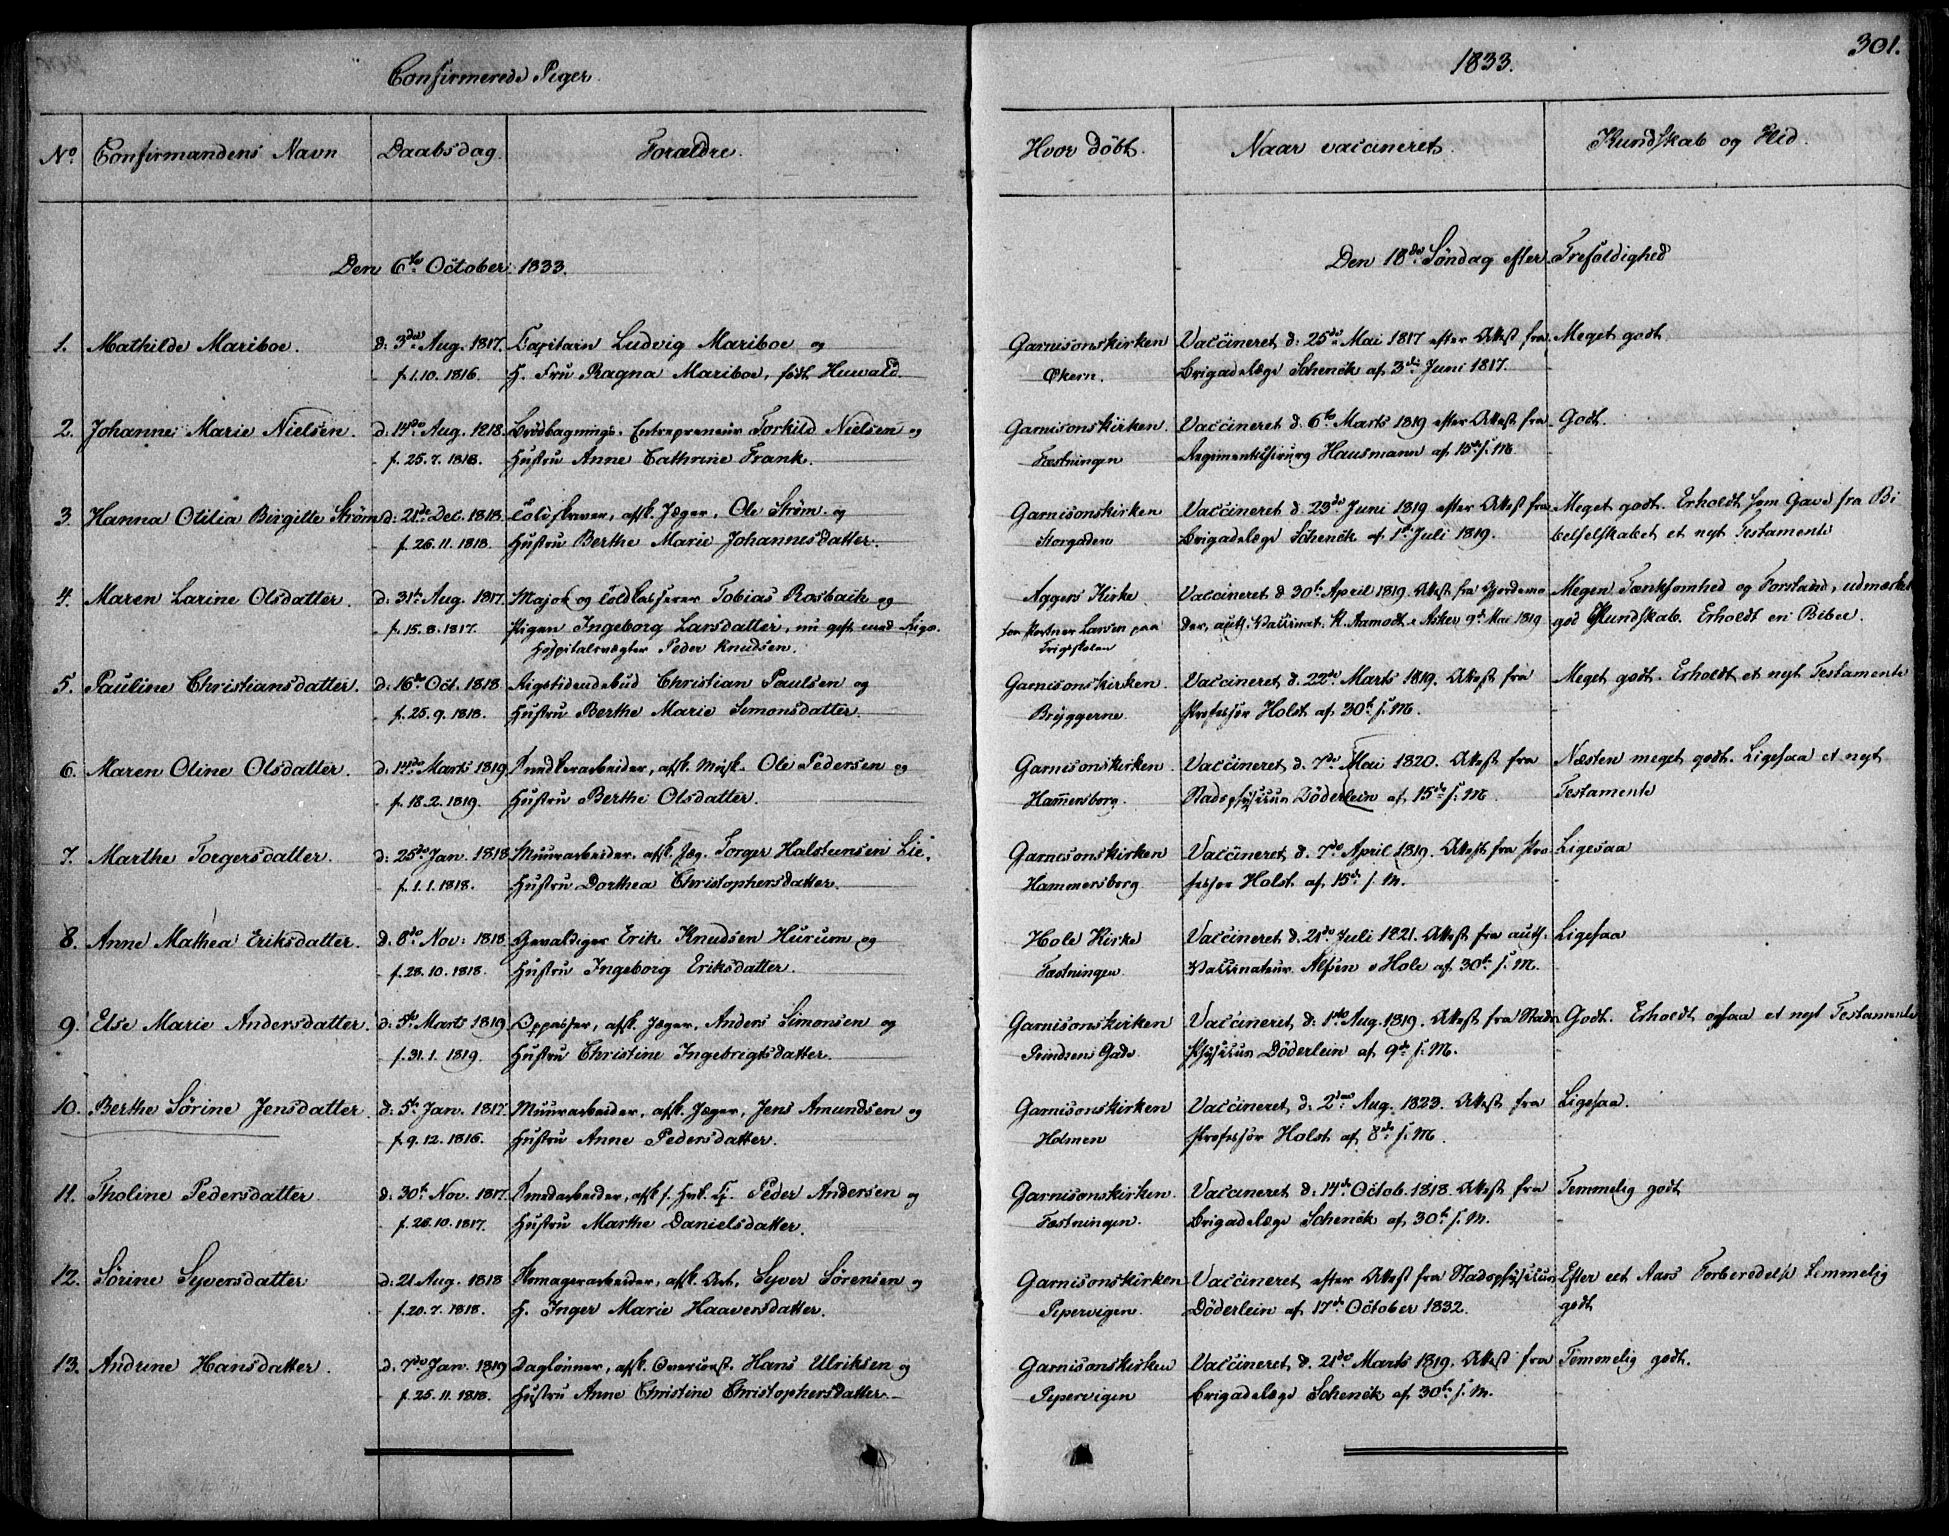 301.
Confirmerede Piger. 1833.
No. Confirmandens Navn Daabsdag. Forældre. Hvor döbt. Naar vaccineret. Kundskab og Flid.
Den 6te October 1833. Den 18de Söndag efter Trefoldighed
1. Mathilde Mariboe. d. 3die Aug. 1817. Capitain Ludvig Mariboe og Garnisonskirken Vaccineret d. 25de Mai 1817 efter Attest fra Meget godt
f. 1.10.1816. H. Fru Ragna Mariboe, født Huwald. Økern. Brigadelæge Schenck af 3die Juni 1817.
2. Johanne Marie Nielsen. d. 14de Aug. 1818. Brödbagnings-Entrepreneur Torkild Nielsen og Garnisonskirken. Vaccineret d. 6te Marts 1819 efter Attest fra Godt.
f. 25.7.1818. Hustru Anne Cathrine Frank. Fæstningen Regimentschirurg Hausmann af 15de s. M.
3. Hanna Otilia Birgitte Ström d. 21de Dec. 1818. afsk. Jæger, Ole Ström og Garnisonskirken Vaccineret d. 23de Juni 1819 efter Attest fra Meget godt. Erholdt som Gave fra Bi
f. 26.11.1818. Hustru Berthe Marie Johannesdatter. Storgaden Brigadelæge Schenck af 1ste Juli 1819. belselskabet et nyt Testamente
4. Maren Larine Olsdatter. d. 31te Aug. 1817. Major og Toldkasserer Tobias Rosback og Aggers Kirke. Vaccineret d. 30te April 1819. Attest fra Gjordemo Megen Tænksomhed og Forstand, udmærket
f. 15.8.1817. Pigen Ingeborg Larsdatter, nu gift med Rigs- hos Portner Larsen paa der, auth. Vaccinat. K. Aamodt i Asker 9de Mai 1819 god Kundskab. Erholdt en Bibel.
Hospitalsvægter Peder Knudsen. Frigskolen
5. Pauline Christiansdatter. d. 16de Oct. 1818 Rigstidendebud Christian Paulsen og Garnisonskirken. Vaccineret d. 22de Marts 1819. Attest fra Meget godt. Erholdt et nyt Testamente
f. 25.9.1818. Hustru Berthe Marie Simonsdatter. Bryggerne Professor Holst af 30te s. M.
6. Maren Oline Olsdatter. d. 14de Marts 1819 Snedkerarbeider, afsk. Musk. Ole Pedersen og Garnisonskirken. Vaccineret d. 7de Mai 1820. Attest fra Næsten meget godt. Ligesaa et nyt
f. 18.2.1819. Hustru Berthe Olsdatter. Hammersborg. Stadsphysicus Döderlein af 15de s. M. Testamente
7. Marthe Torgersdatter. d. 25de Jan. 1818 Muurarbeider, afsk. Jæg. Torger Halstensen Lie, Garnisonskirken Vaccineret d. 7de April 1819. Attest fra Pro Ligesaa
f. 1.1.1818. Hustru Dorthea Christophersdatter. Hammersborg fessor Holst af 15de s. M.
8. Anne Mathea Eriksdatter. d. 8de Nov: 1818 Gevaldiger Erik Knudsen Hurum og Hole Kirke Vaccineret d. 21de Juli 1821. Attest fra auth. Ligesaa
f. 28.10.1818. Hustru Ingeborg Eriksdatter. Fæstningen Vaccinateur Alsen i Hole af 30te s. M.
9. Else Marie Andersdatter. d. 5te Marts 1819 Oppasser, afsk. Jæger, Anders Simonsen og Garnisonskirken Vaccineret d. 1ste Aug. 1819. Attest fra Stads Godt. Erholdt ogsaa et nyt Testamente
f. 31.1.1819. Hustru Christine Ingebrigtsdatter. Prindsens Gade Physicus Döderlein af 9de s. M.
10. Berthe Sörine Jensdatter. d. 5te Jan. 1817. Muurarbeider, afsk. Jæger, Jens Amundsen og Garnisonskirken Vaccineret d. 2den Aug. 1823. Attest fra Ligesaa.
f. 9.12.1816. Hustru Anne Pedersdatter. Holmen Professor Holst af 8de s. M.
11. Tholine Pedersdatter d. 30te Nov. 1817. Smedarbeider, afsk. Peder Andersen og Garnisonskirken. Vaccineret d. 14de Octob. 1818. Attest fra Temmelig godt
f. 26.10.1817. Hustru Marthe Danielsdatter. Fæstningen. Brigadelæge Schenck af 30te s. M.
12. Sörine Syversdatter d. 21 Aug. 1818 afsk. Art. Syver Sörensen og Garnisonskirken Vaccineret efter Attest fra Stadsphysicus Efter eet Aars Forberedelse temmelig
f. 20.7.1818. H. Inger Marie Haaversdatter. Pepervigen. Döderlein af 17de October 1832. godt
13. Andrine Hansdatter. d. 7de Jan. 1819 Daglönner, afsk. Hans Ulriksen og Garnisonskirken Vaccineret d. 21de Marts 1819. Attest fra Temmelig godt.
f. 25.11.1818. Hustru Anne Christine Christophersdatter. Pepervigen Brigadelæge Schenck af 30te s. M.